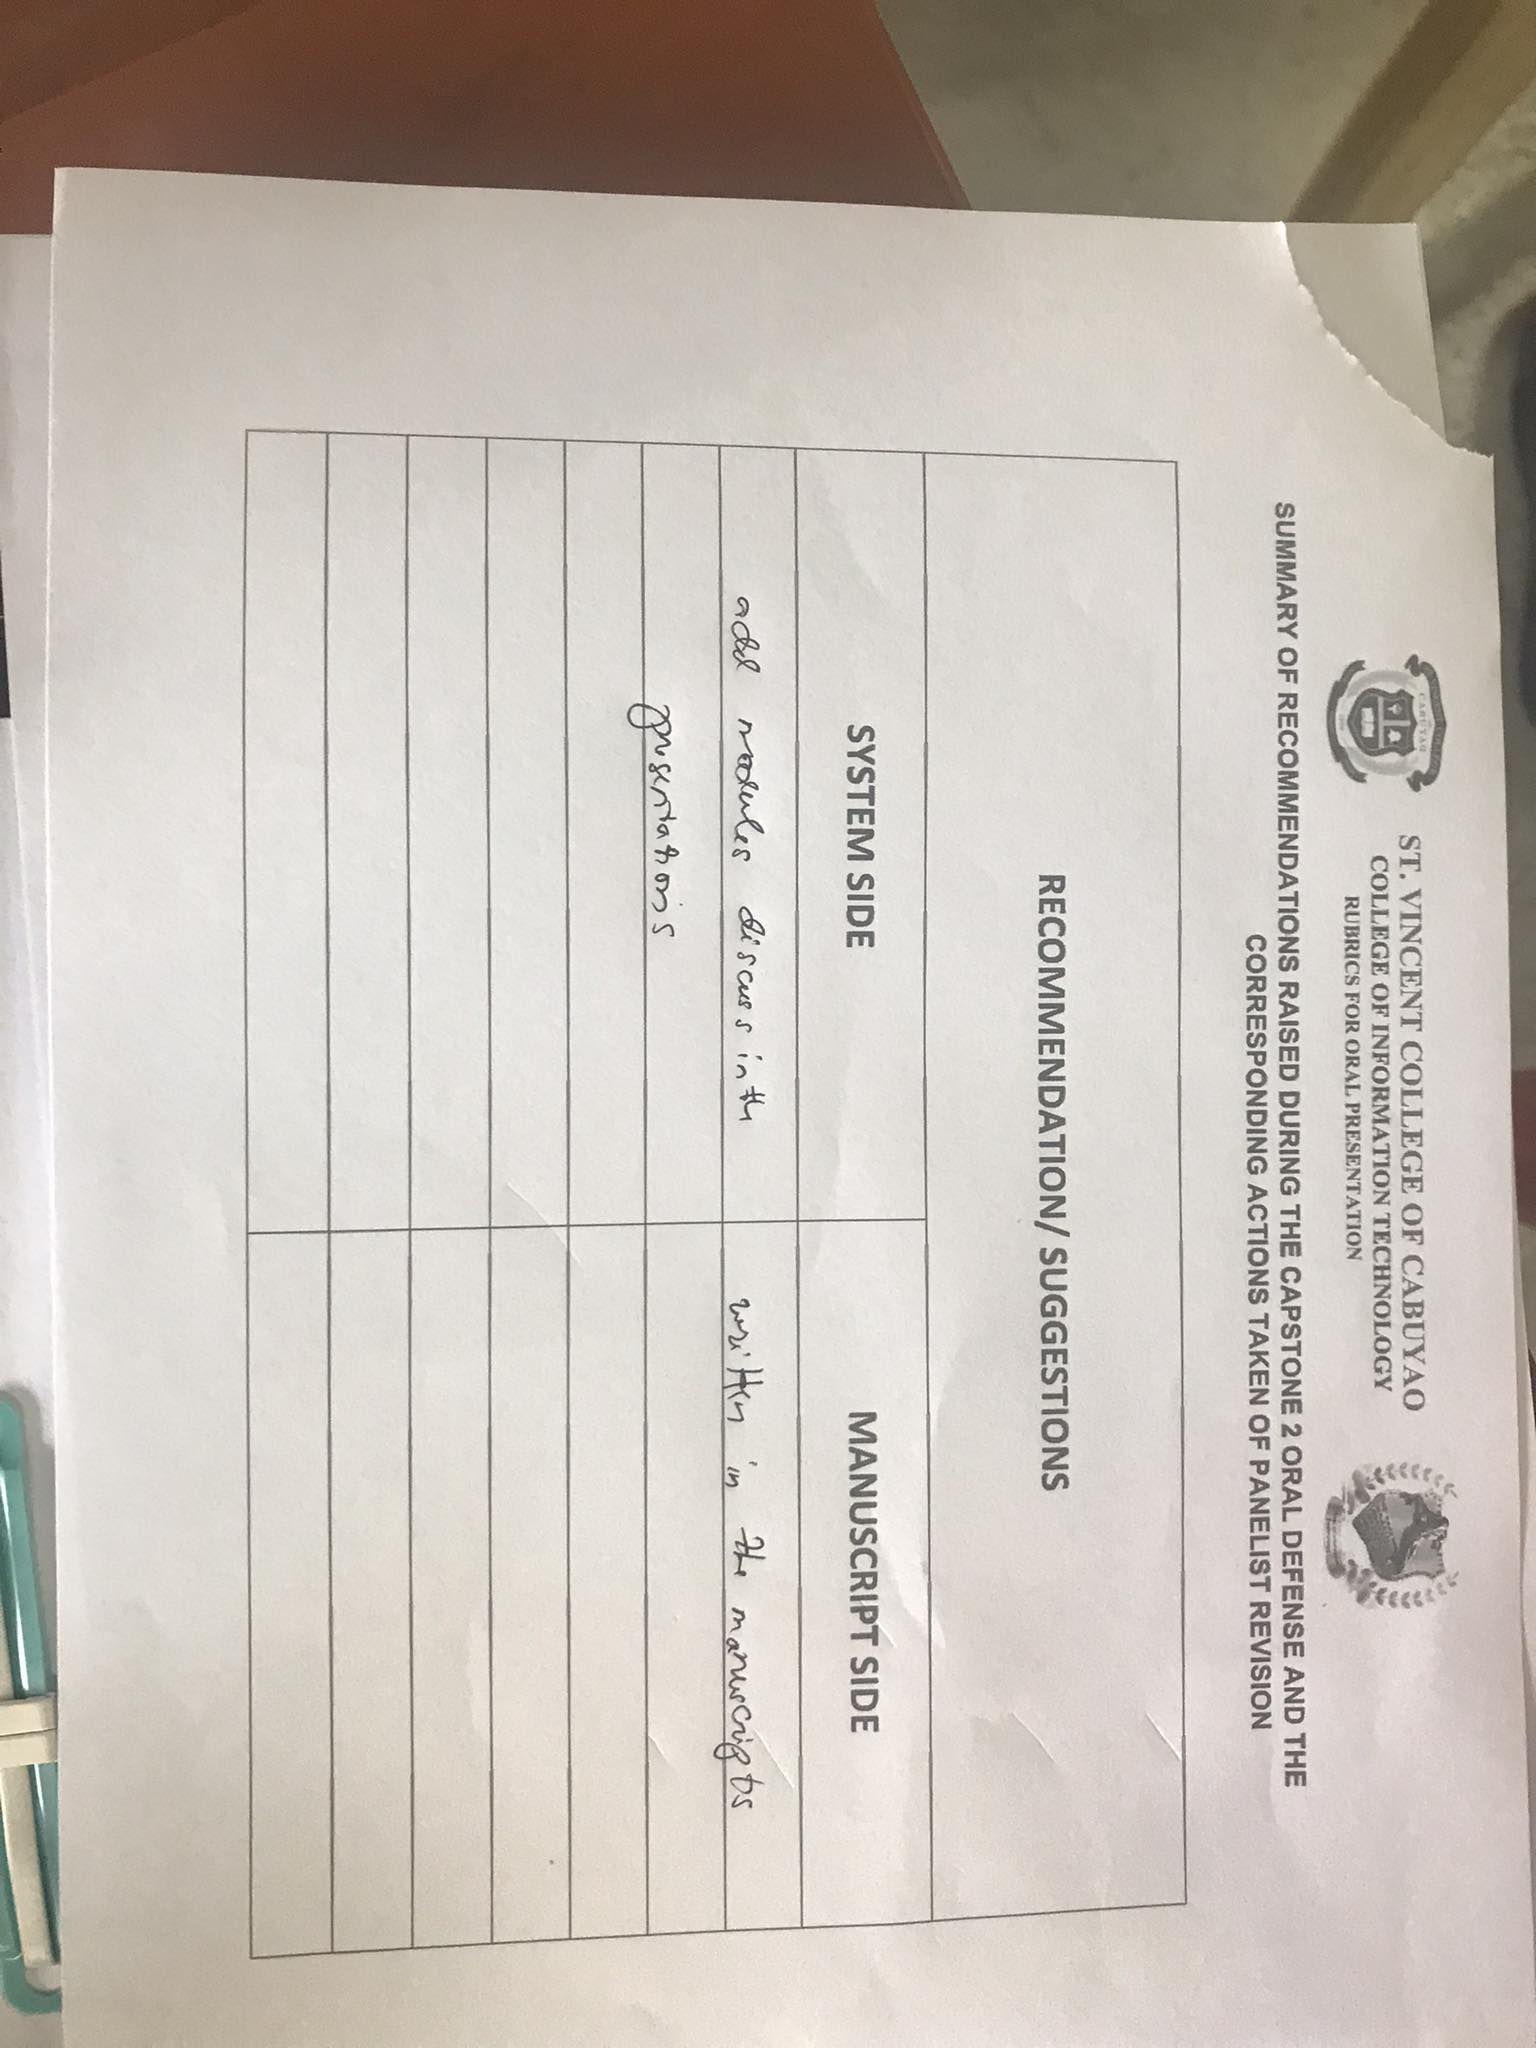 CABUYAO
ST. VINCENT COLLEGE OF CABUYAO
COLLEGE OF INFORMATION TECHNOLOGY
RUBRICS FOR ORAL PRESENTATION
SUMMARY OF RECOMMENDATIONS RAISED DURING THE CAPSTONE 2 ORAL DEFENSE AND THE
CORRESPONDING ACTIONS TAKEN OF PANELIST REVISION
RECOMMENDATION/ SUGGESTIONS
SYSTEM SIDE
MANUSCRIPT SIDE
add modules discuss in the
written in the manuscripts
presentations